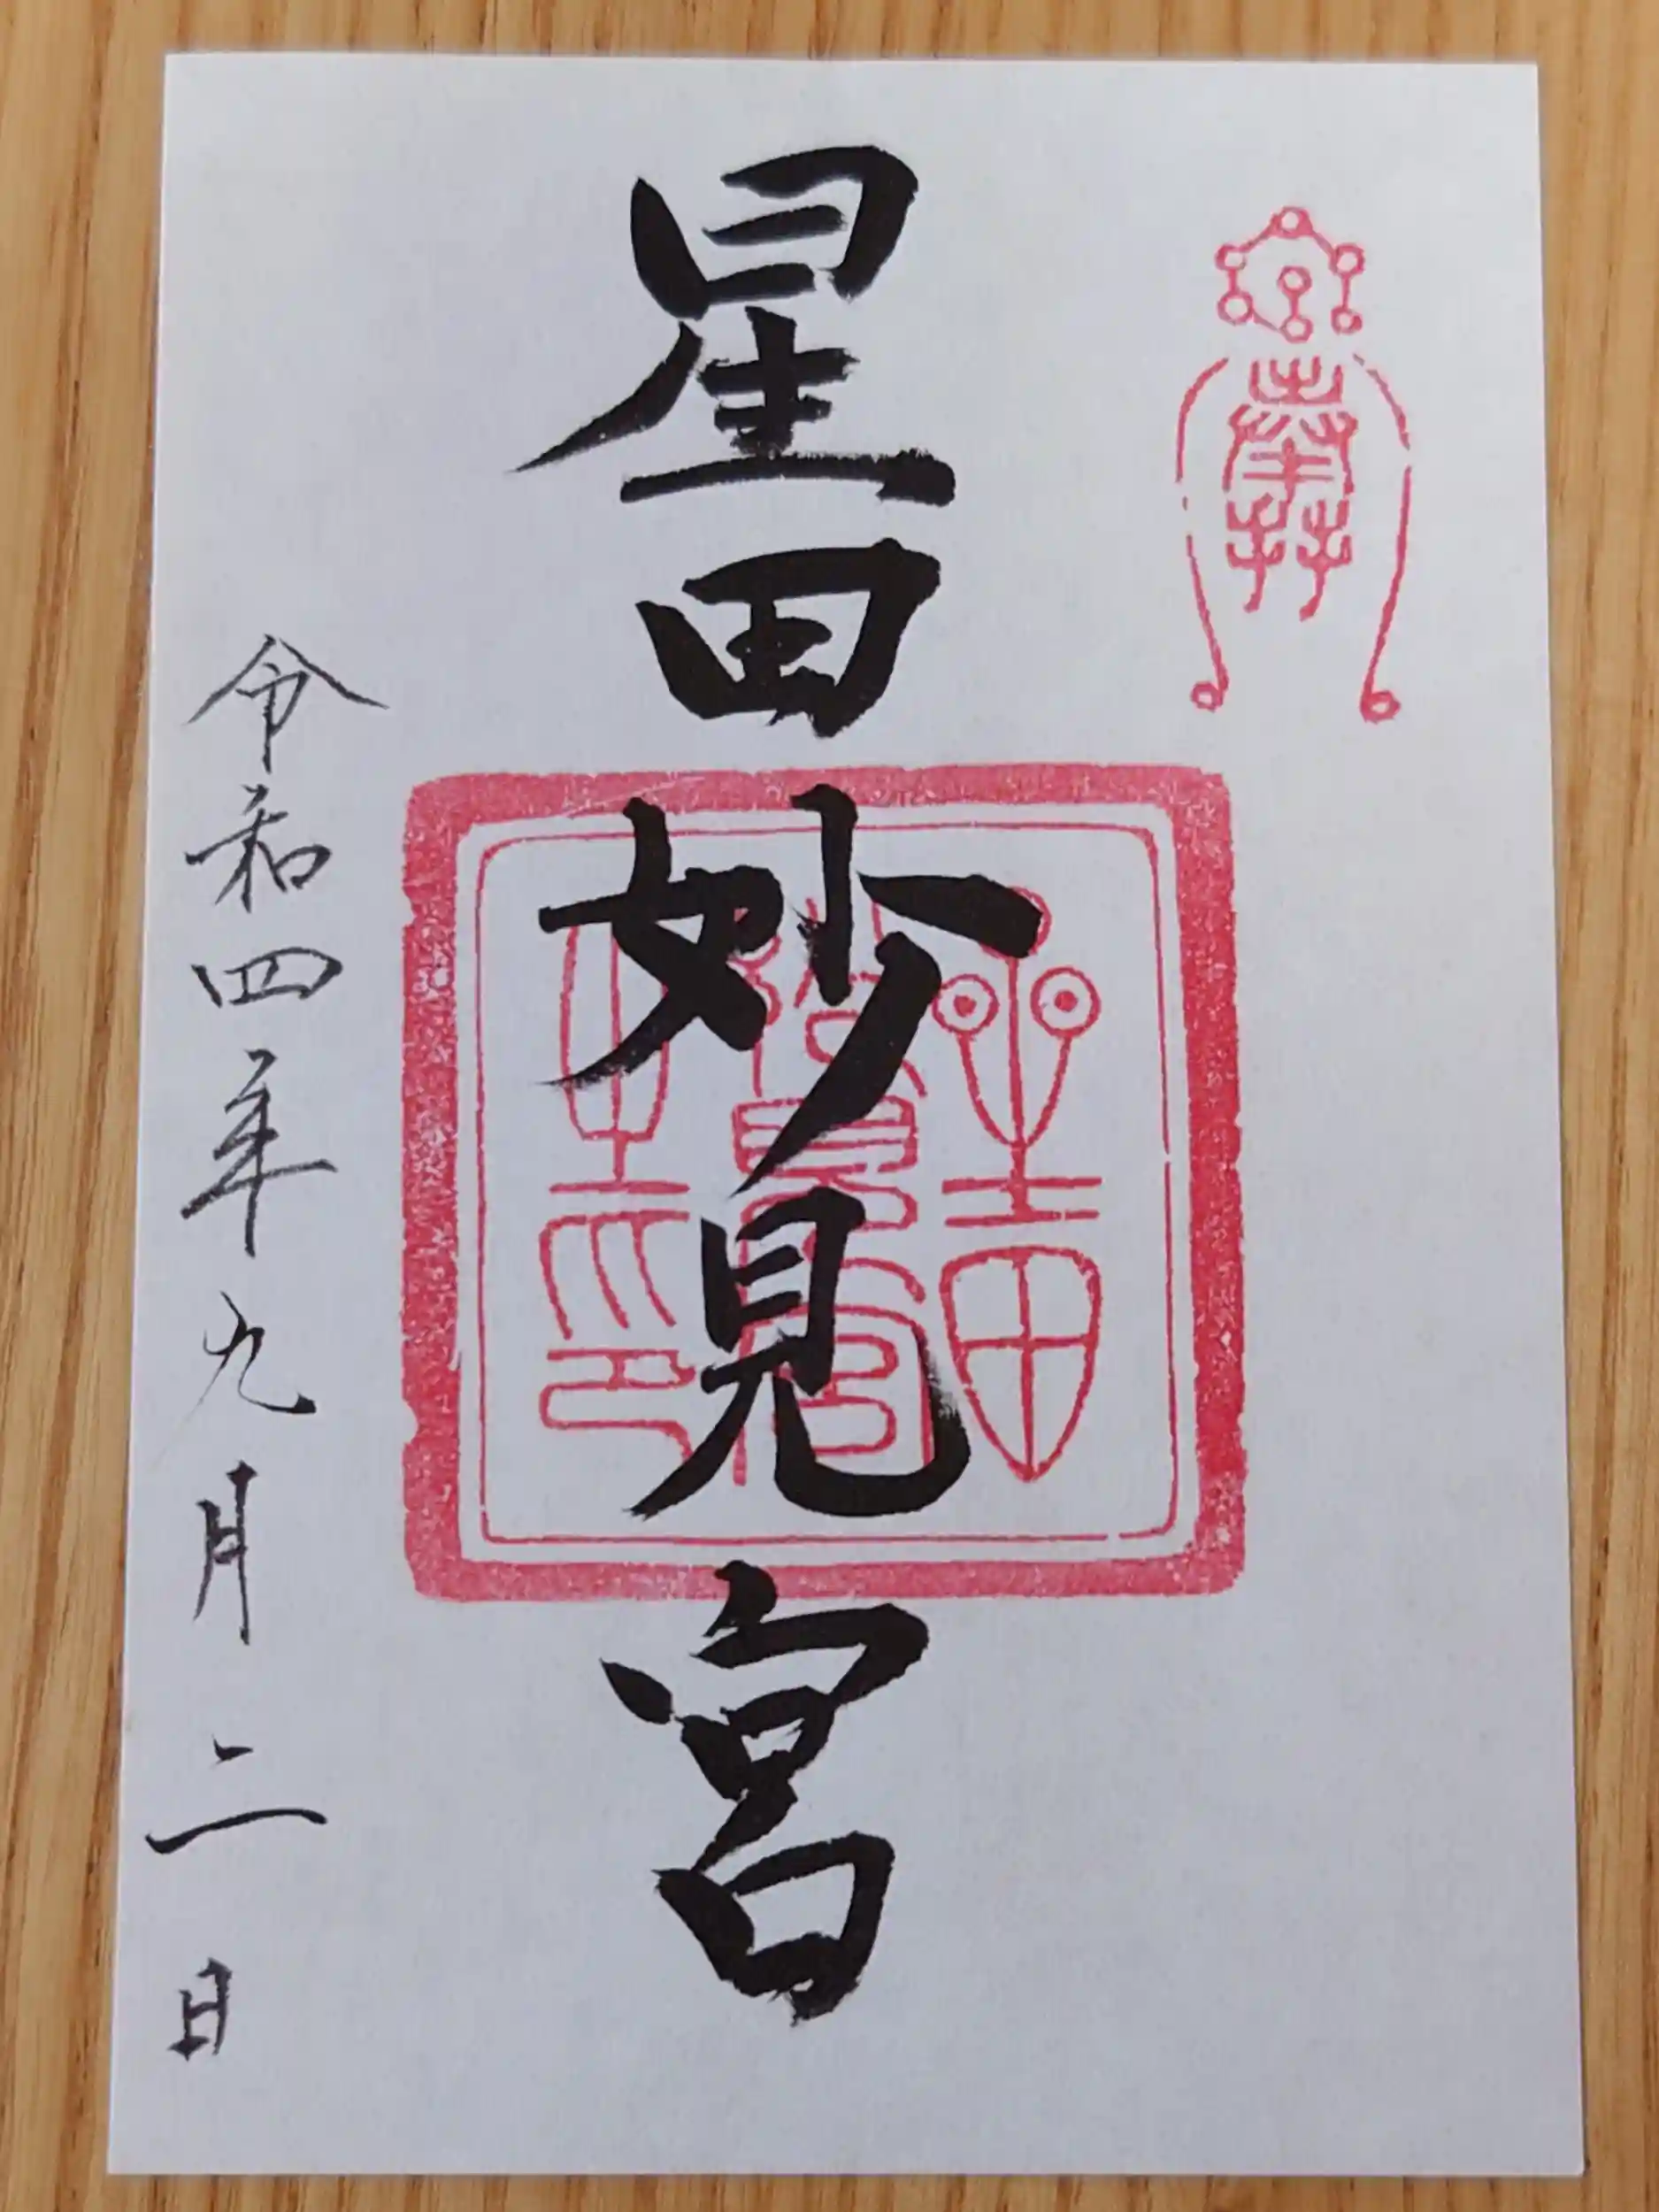 星田妙見宮
星田
妙見宮
之印
令和四年九月二日